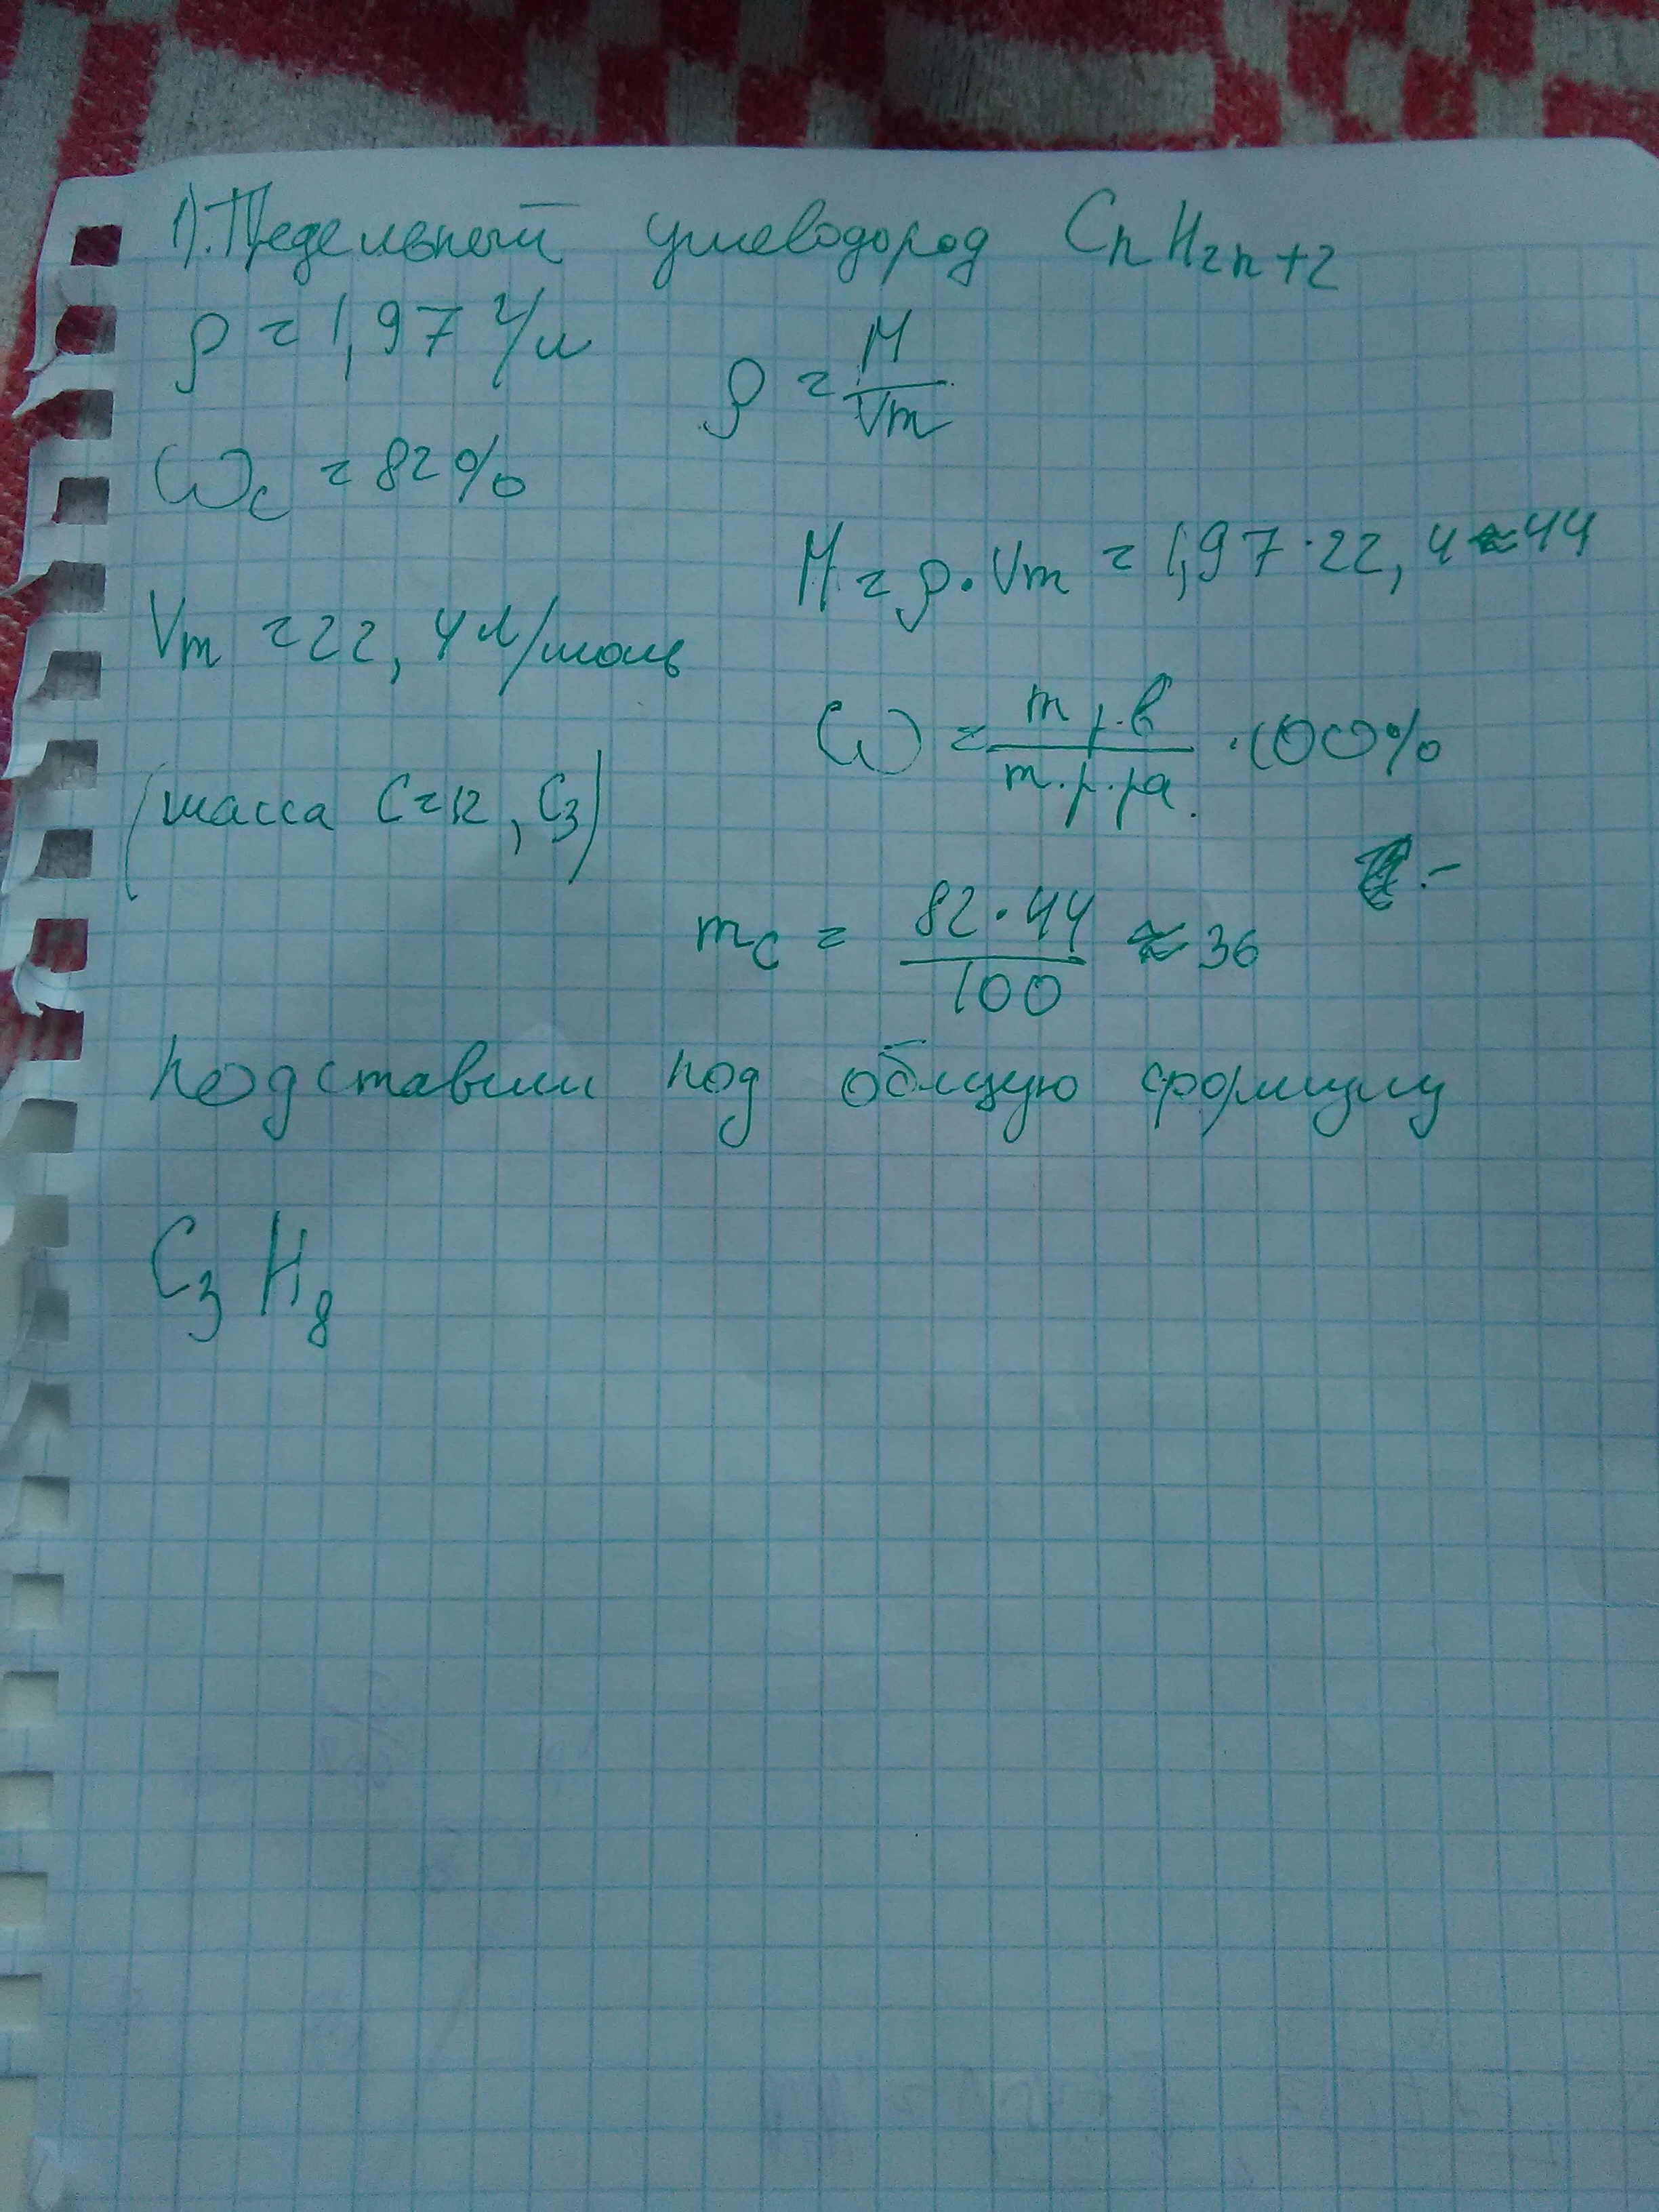 1). Предельный углеводород CnH2n+2
ρ = 1,97 г/л
ρ = M/Vm
ωc = 82%
M = ρ · Vm = 1,97 · 22,4 ≈ 44
Vm = 22,4 л/моль
ω = m р.в / m.р.ра. · 100%
(масса C=12, C3)
mc = 82·44/100 ≈ 36
подставим под общую формулу
C3H8